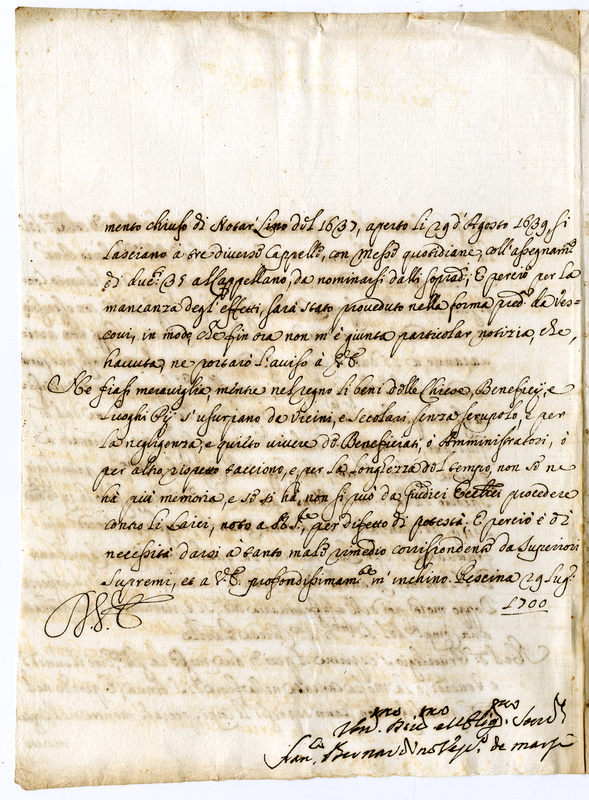 mento chiuso di Notar Lino del 1637, aperto li 29 d'Agosto 1639, si
lasciano a tre diverse Cappelle, con Messe quotidiane, coll'assegnam.to
di duc.ti 35 al Cappellano, da nominarsi dalli soprad.i; E perciò per la
mancanza degl'effetti, sarà stato proveduto nella forma pred.a da Ves-
covi, in modo che fin ora non m'è giunta particolar notizia, che,
havuta, ne portarò l'aviso à V.E.
Ne fiasi meraviglia, mentre nel regno li beni delle Chiese, Beneficij, e
Luoghi Pij s'usurpano da Vicini, e Secolari senza scrupolo, e per
la negligenza, e quieto vivere de Beneficiati, ò Amministratori, ò
per altro rispetto tacciono, e per la longhezza del tempo, non se ne
hà più memoria, e se si hà, non si può da Giudici Eccl.ci procedere
contro li Laici, noto a per difetto di potestà; E perciò è di
necessità darsi à tanto male rimedio corrispondente da Superiori
Supremi, et a V.E. profondissimam.te m'inchino. Pescina 29 Lug.o
1700
V.E.
Um.mo Dev.mo et Oblig.mo Serv.
Fran.co Bernardino Vesc.o de Marsi